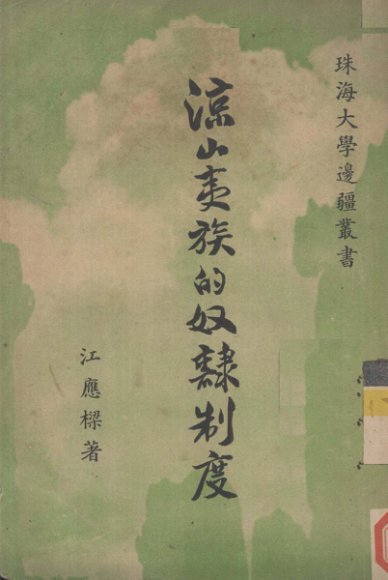 珠海大學邊疆叢書
涼山夷族的奴隸制度
江應樑著